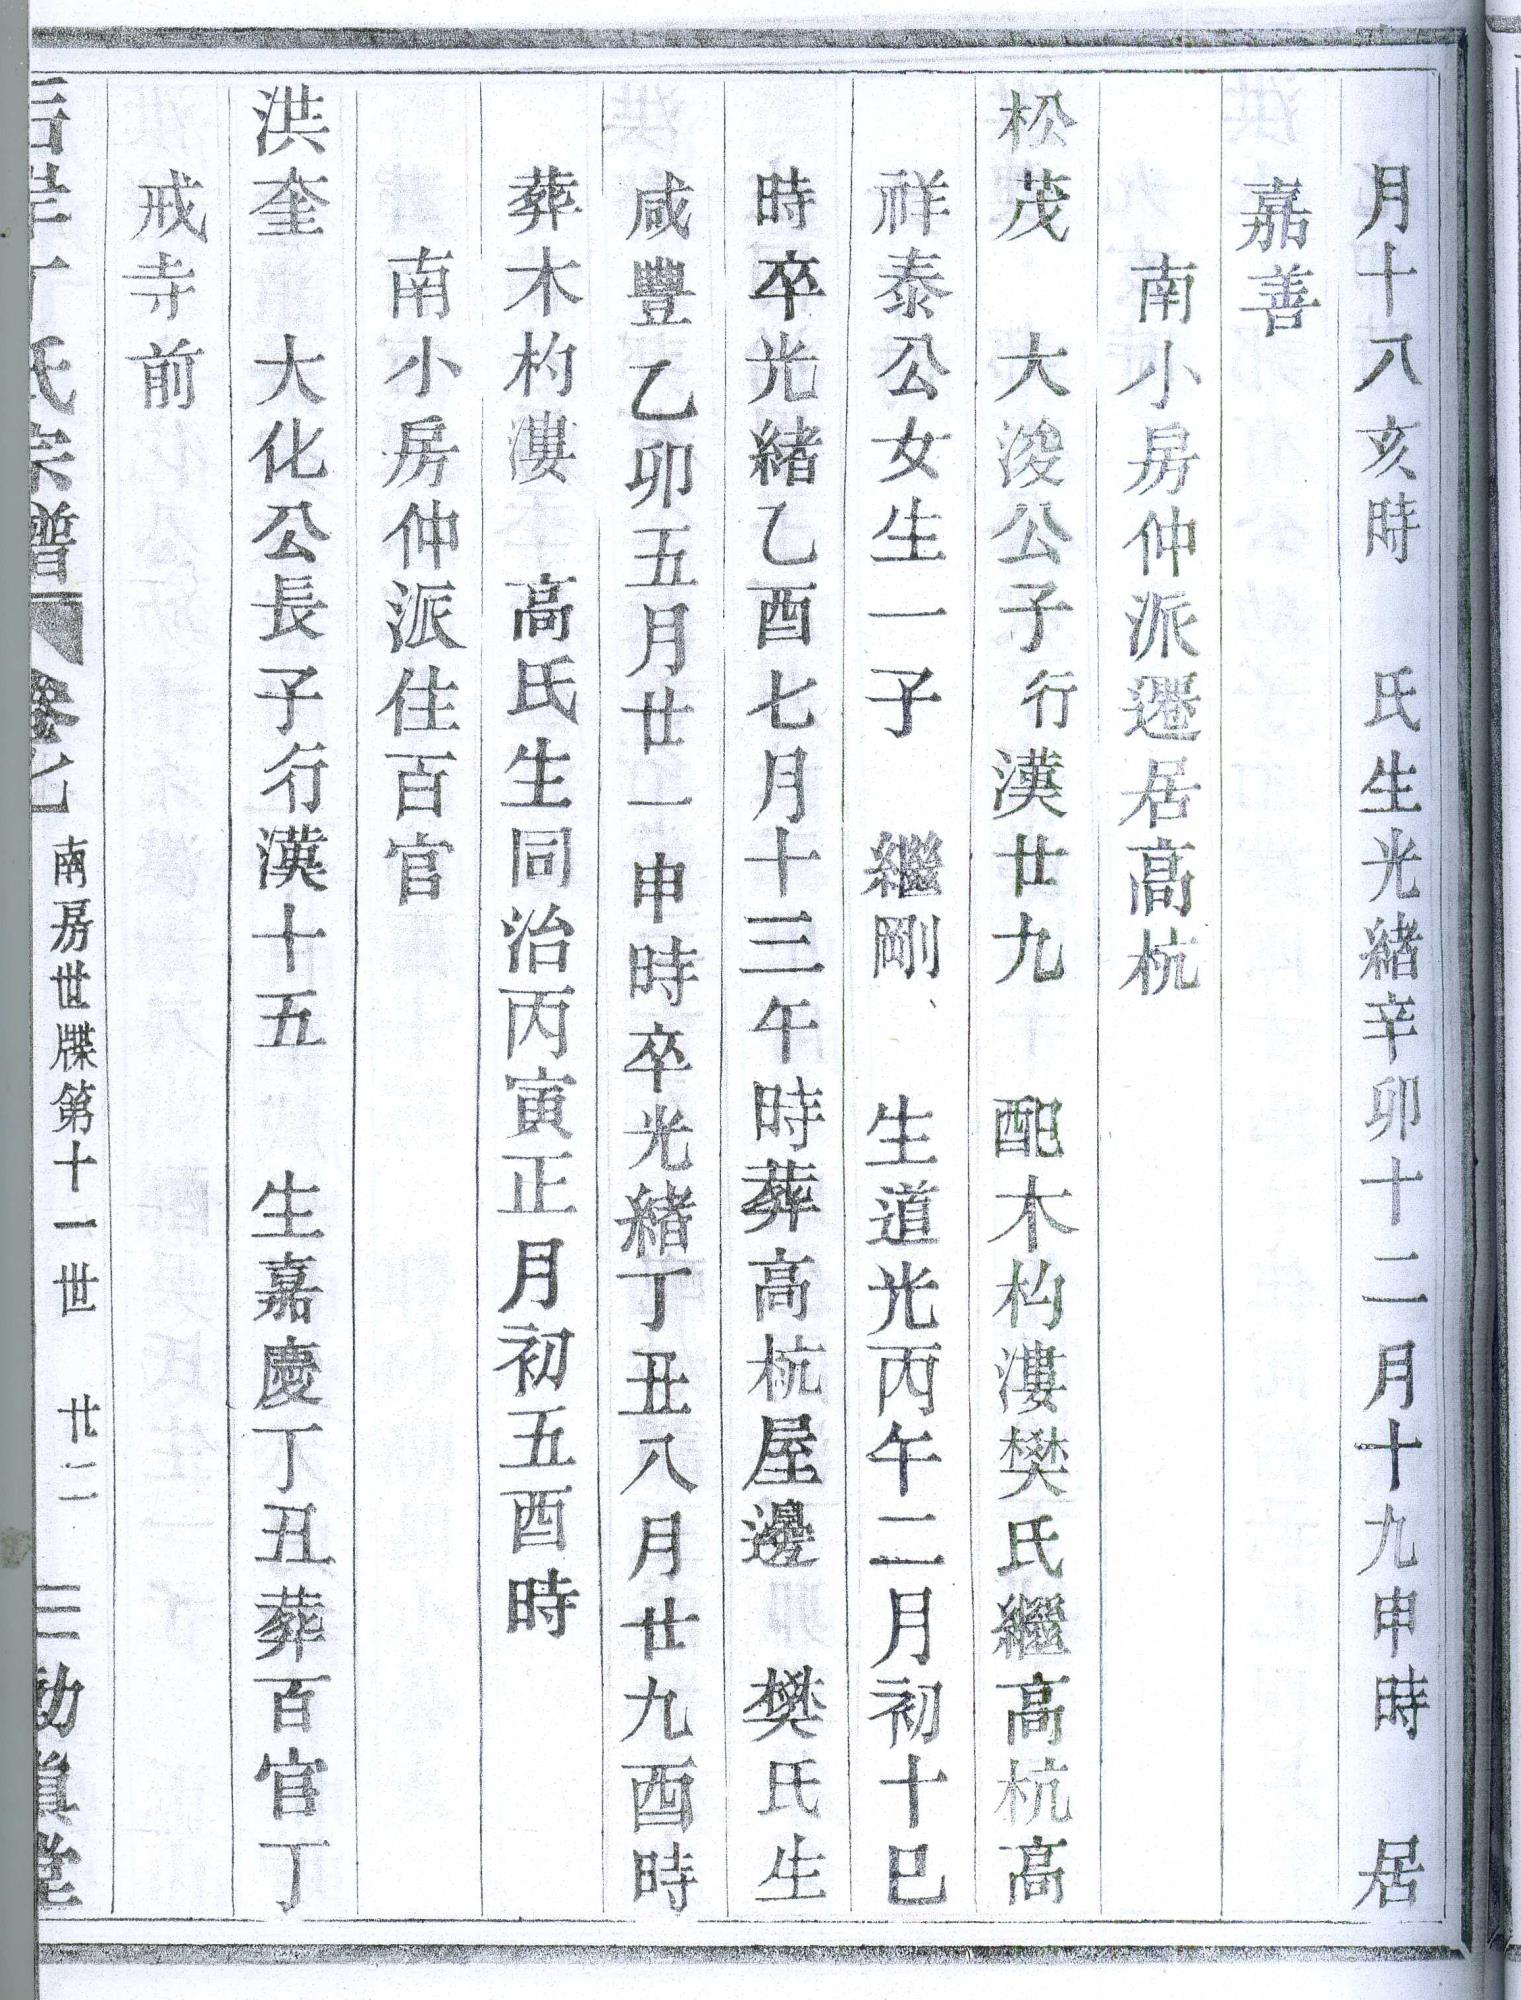 月十八亥時　氏生光緒辛卯十二月十九申時　居
嘉善
南小房仲派遷居高杭
松茂　大浚公子行漢廿九　配木杓漊樊氏繼高杭高
祥泰公女生一子　繼剛、　生道光丙午二月初十巳
時卒光緒乙酉七月十三午時葬高杭屋邊　樊氏生
咸豐乙卯五月廿一申時卒光緒丁丑八月廿九酉時
葬木杓漊　高氏生同治丙寅正月初五酉時
南小房仲派住百官
洪奎　大化公長子行漢十五　生嘉慶丁丑葬百官丁
戒寺前
丁氏宗譜　卷七　南房世牒第十一世　廿二